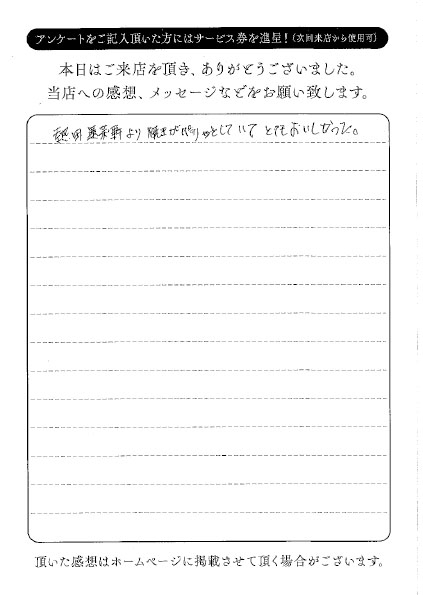 アンケートをご記入頂いた方にはサービス券を進呈！(次回来店から使用可)
本日はご来店を頂き、ありがとうございました。
当店への感想、メッセージなどをお願い致します。
熱田蓬莱軒より焼きがパリッとしていてとてもおいしかった。
頂いた感想はホームページに掲載させて頂く場合がございます。